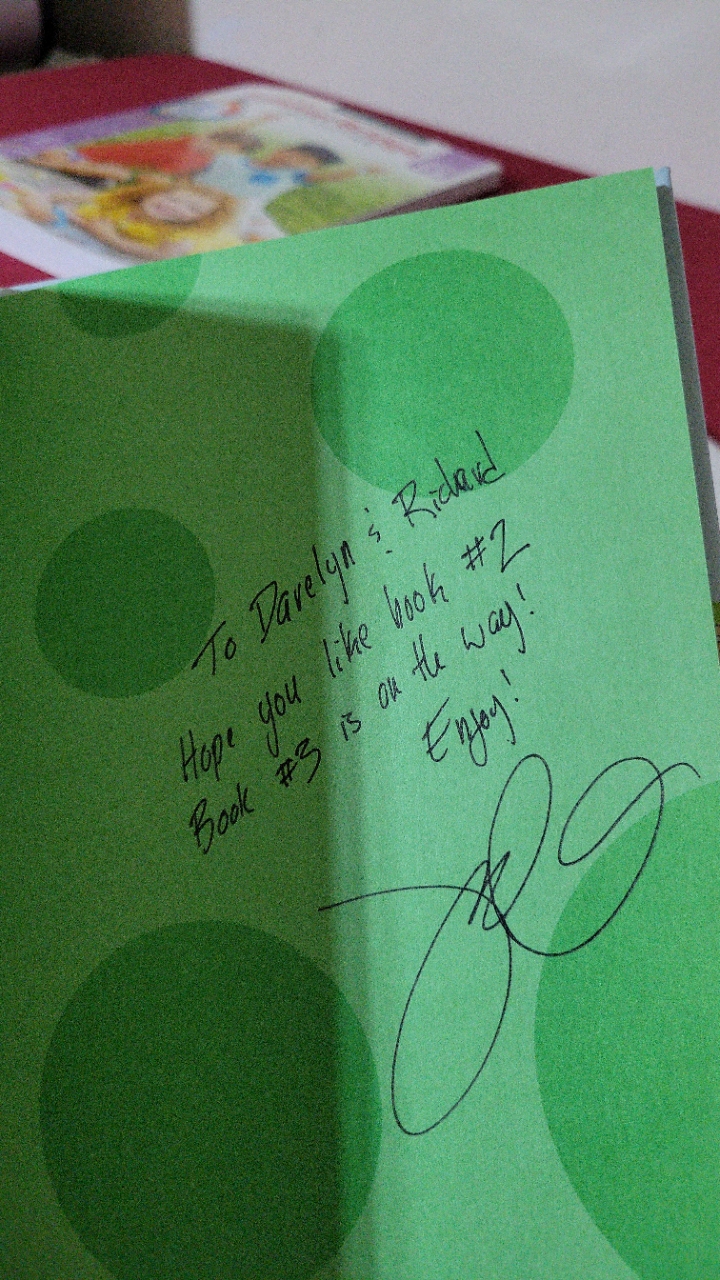 To Davelyn & Richard
Hope you like book #2
Book #3 is on the way!
Enjoy!